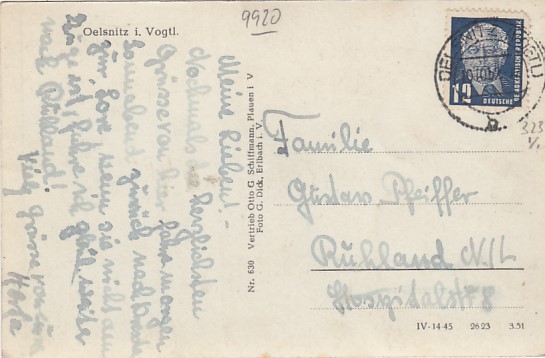 9920
Oelsnitz i. Vogtl.
Meine Lieben! -
Nochmals die herzlichsten
Grüsse von hier fahre morgen
Sonnabend zurück nach
zur Lore, wenn sie nicht zu
ist, fahre ich gleich weiter
nach Ruhland!
Viele Grüsse von
Nr. 630 Vertrieb Otto G. Schiffmann, Plauen i V
Foto G. Dick, Erlbach i. V.
12
DEUTSCHE DEMOKRATISCHE REPUBLIK
OELSNITZ (VOGTL)
b
323
Familie
Gustav Pfeiffer
Ruhland N./L
Hospitalstr 8
IV-14-45 2623 3.51